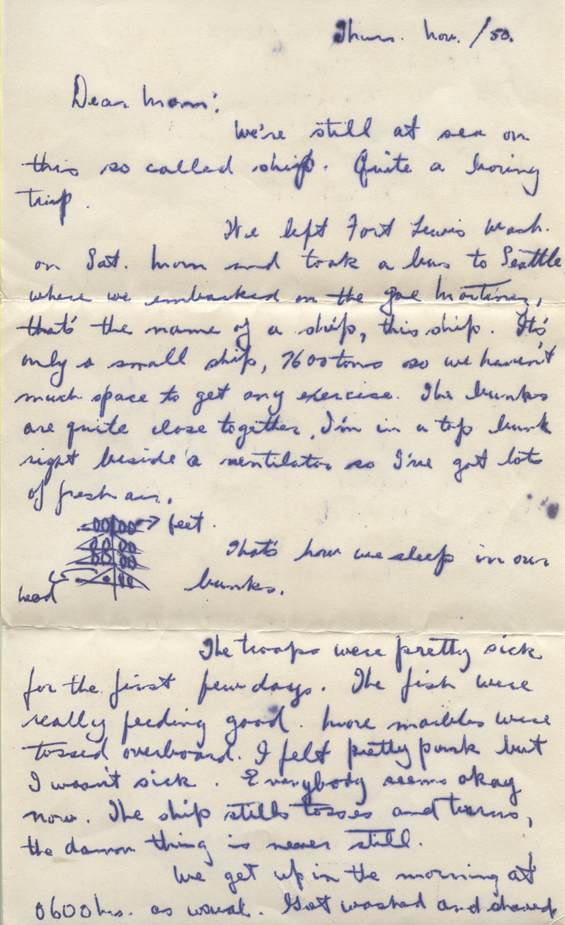 Thurs. Nov. /50.
Dear Mom:
We're still at sea on
this so called ship. Quite a boring
trip.
We left Fort Lewis Wash.
on Sat. morn and took a bus to Seattle
where we embarked on the Gen Martinez,
that's the name of a ship, this ship. It's
only a small ship, 7600 tons so we haven't
much space to get any exercise. The bunks
are quite close together, I'm in a top bunk
right beside a ventilator so I've got lots
of fresh air.
feet.
That's how we sleep in our
head
bunks.
The troops were pretty sick
for the first few days. The fish were
really feeding good. More marbles were
tossed overboard. I felt pretty punk but
I wasn't sick. Everybody seems okay
now. The ship stills tosses and turns,
the damn thing is never still.
We get up in the morning at
0600 hrs. as usual. Get washed and shaved